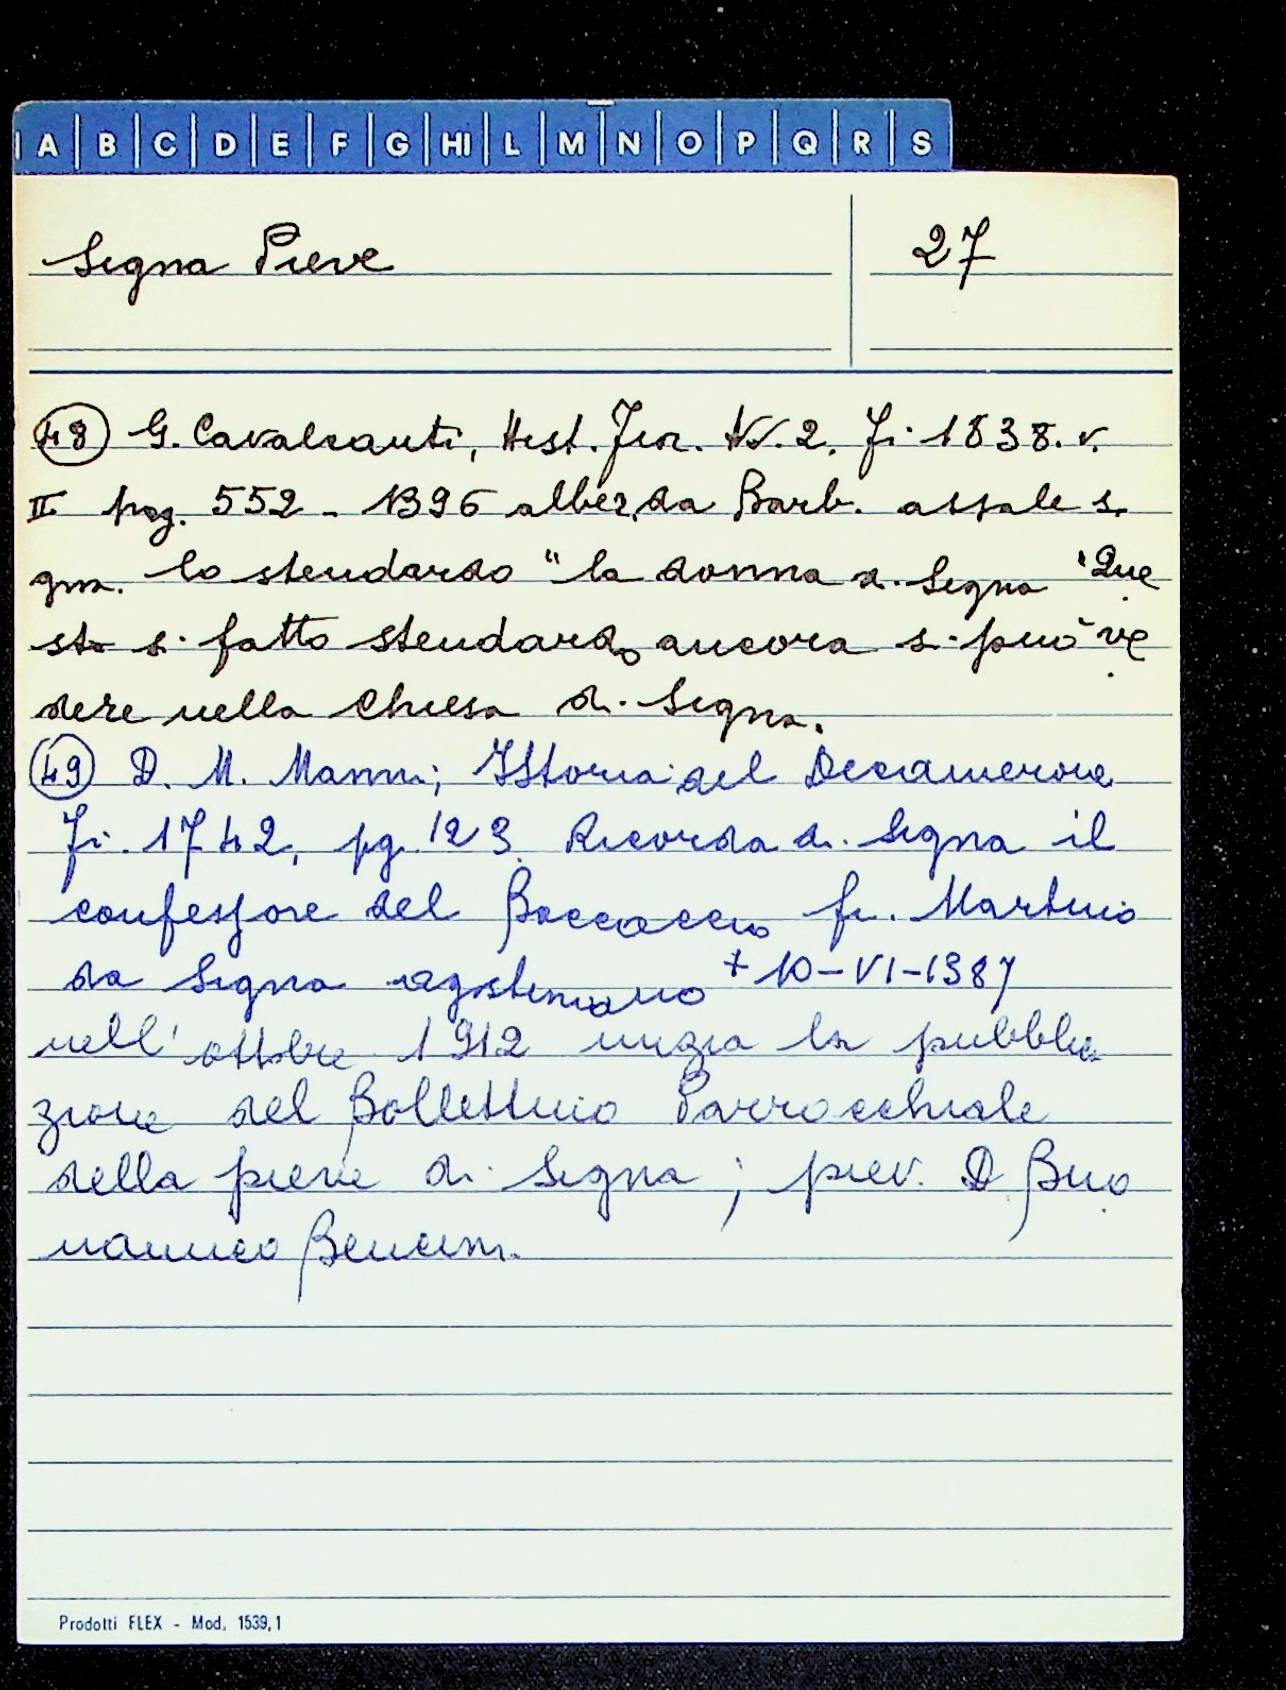 A B C D E F G HI L M N O P Q R S
Segna Pieve 27
48 G. Cavalcanti, Hist. Fior. IV. 2. Fi. 1838. v.
II pag. 552 - 1396 alber. da Barb. assale s.
gna. lo stendardo "la donna di Segna "Que
sto si fatto stendardo ancora si può ve
dere nella Chiesa di Segna.
49 D. M. Manni; Istoria del Decamerone
Fi. 1742, pg. 123. Ricorda di Segna il
confessore del Boccaccio fr. Martino
da Segna agostiniano + 10-VI-1387
nell'ottobre 1912 inizia la pubblica
zione del Bollettino Parrocchiale
della pieve di Segna; piev. D Buo
namico Bencini.
Prodotti FLEX - Mod. 1539,1